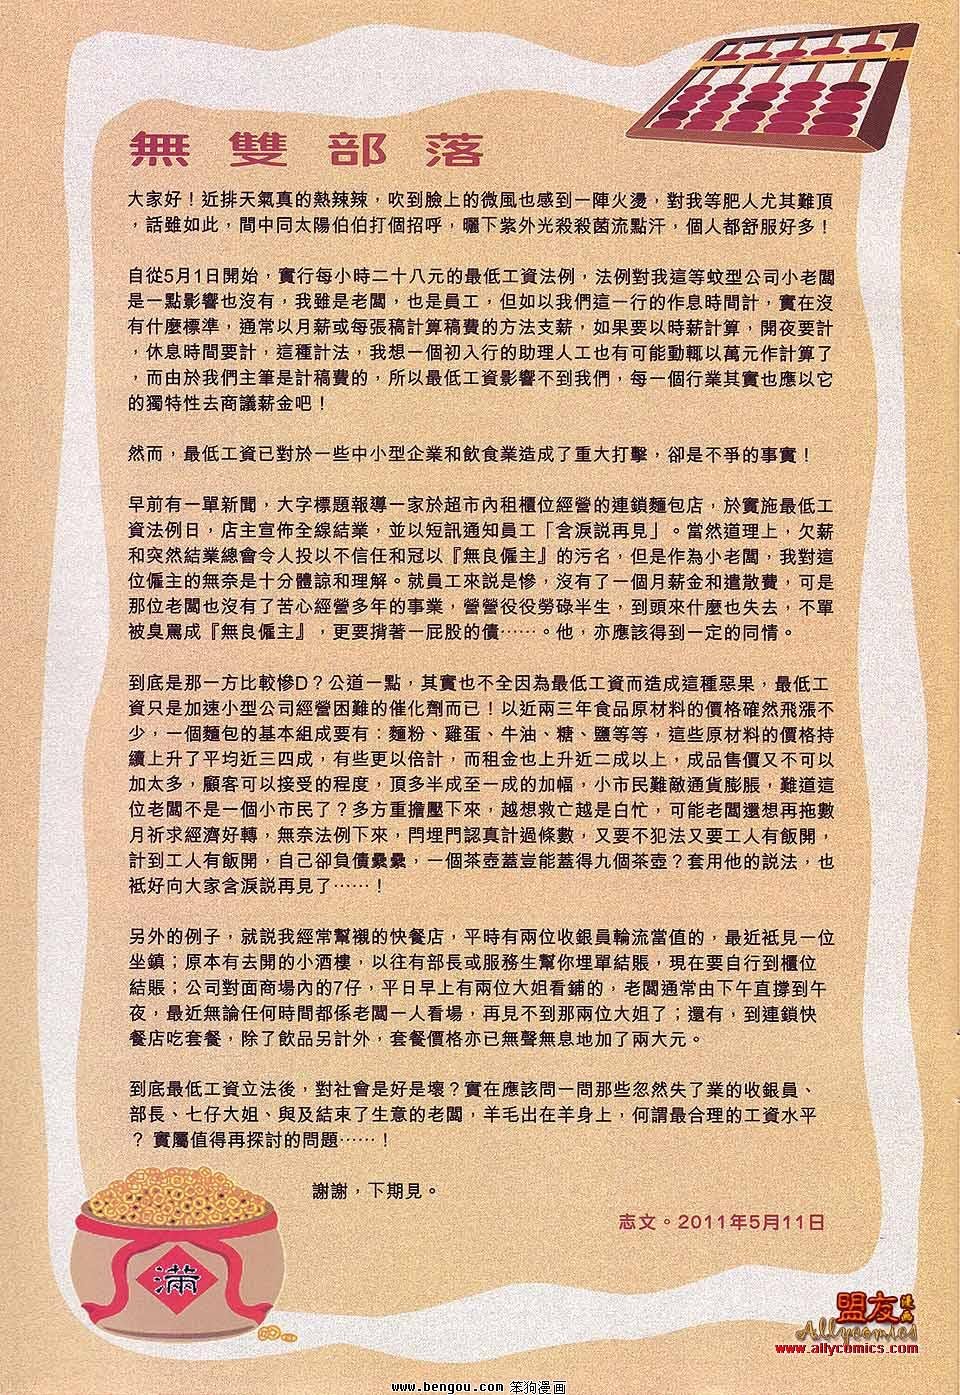 無雙部落
大家好！近排天氣真的熱辣辣，吹到臉上的微風也感到一陣火燙，對我等肥人尤其難頂
，話雖如此，間中同太陽伯伯打個招呼，曬下紫外光殺殺菌流點汗，個人都舒服好多！
自從5月1日開始，實行每小時二十八元的最低工資法例，法例對我這等蚊型公司小老闆
是一點影響也沒有，我雖是老闆，也是員工，但如以我們這一行的作息時間計，實在沒
有什麼標準，通常以月薪或每張稿計算稿費的方法支薪，如果要以時薪計算，開夜要計
，休息時間要計，這種計法，我想一個初入行的助理人工也有可能動輒以萬元作計算了
，而由於我們主筆是計稿費的，所以最低工資影響不到我們，每一個行業其實也應以它
的獨特性去商議薪金吧！
然而，最低工資已對於一些中小型企業和飲食業造成了重大打擊，卻是不爭的事實！
早前有一單新聞，大字標題報導一家於超市內租櫃位經營的連鎖麵包店，於實施最低工
資法例日，店主宣佈全線結業，並以短訊通知員工「含淚説再見」。當然道理上，欠薪
和突然結業總會令人投以不信任和冠以『無良僱主』的污名，但是作為小老闆，我對這
位僱主的無奈是十分體諒和理解。就員工來説是慘，沒有了一個月薪金和遣散費，可是
那位老闆也沒有了苦心經營多年的事業，營營役役勞碌半生，到頭來什麼也失去，不單
被臭罵成『無良僱主』，更要揹著一屁股的債⋯⋯。他，亦應該得到一定的同情。
到底是那一方比較慘D？公道一點，其實也不全因為最低工資而造成這種惡果，最低工
資只是加速小型公司經營困難的催化劑而已！以近兩三年食品原材料的價格確然飛漲不
少，一個麵包的基本組成要有：麵粉、雞蛋、牛油、糖、鹽等等，這些原材料的價格持
續上升了平均近三四成，有些更以倍計，而租金也上升近二成以上，成品售價又不可以
加太多，顧客可以接受的程度，頂多半成至一成的加幅，小市民難敵通貨膨脹，難道這
位老闆不是一個小市民了？多方重擔壓下來，越想救亡越是白忙，可能老闆還想再拖數
月祈求經濟好轉，無奈法例下來，閂埋門認真計過條數，又要不犯法又要工人有飯開，
計到工人有飯開，自己卻負債纍纍，一個茶壺蓋豈能蓋得九個茶壺？套用他的説法，也
祗好向大家含淚説再見了⋯⋯！
另外的例子，就説我經常幫襯的快餐店，平時有兩位收銀員輪流當值的，最近祗見一位
坐鎮；原本有去開的小酒樓，以往有部長或服務生幫你埋單結賬，現在要自行到櫃位
結賬；公司對面商場內的7仔，平日早上有兩位大姐看鋪的，老闆通常由下午直撐到午
夜，最近無論任何時間都係老闆一人看場，再見不到那兩位大姐了；還有，到連鎖快
餐店吃套餐，除了飲品另計外，套餐價格亦已無聲無息地加了兩大元。
到底最低工資立法後，對社會是好是壞？實在應該問一問那些忽然失了業的收銀員、
部長、七仔大姐、與及結束了生意的老闆，羊毛出在羊身上，何謂最合理的工資水平
？ 實屬值得再探討的問題⋯⋯！
謝謝，下期見。
志文。2011年5月11日
滿
盟友漫画
Allycomics
www.allycomics.com
www.bengou.com 笨狗漫画